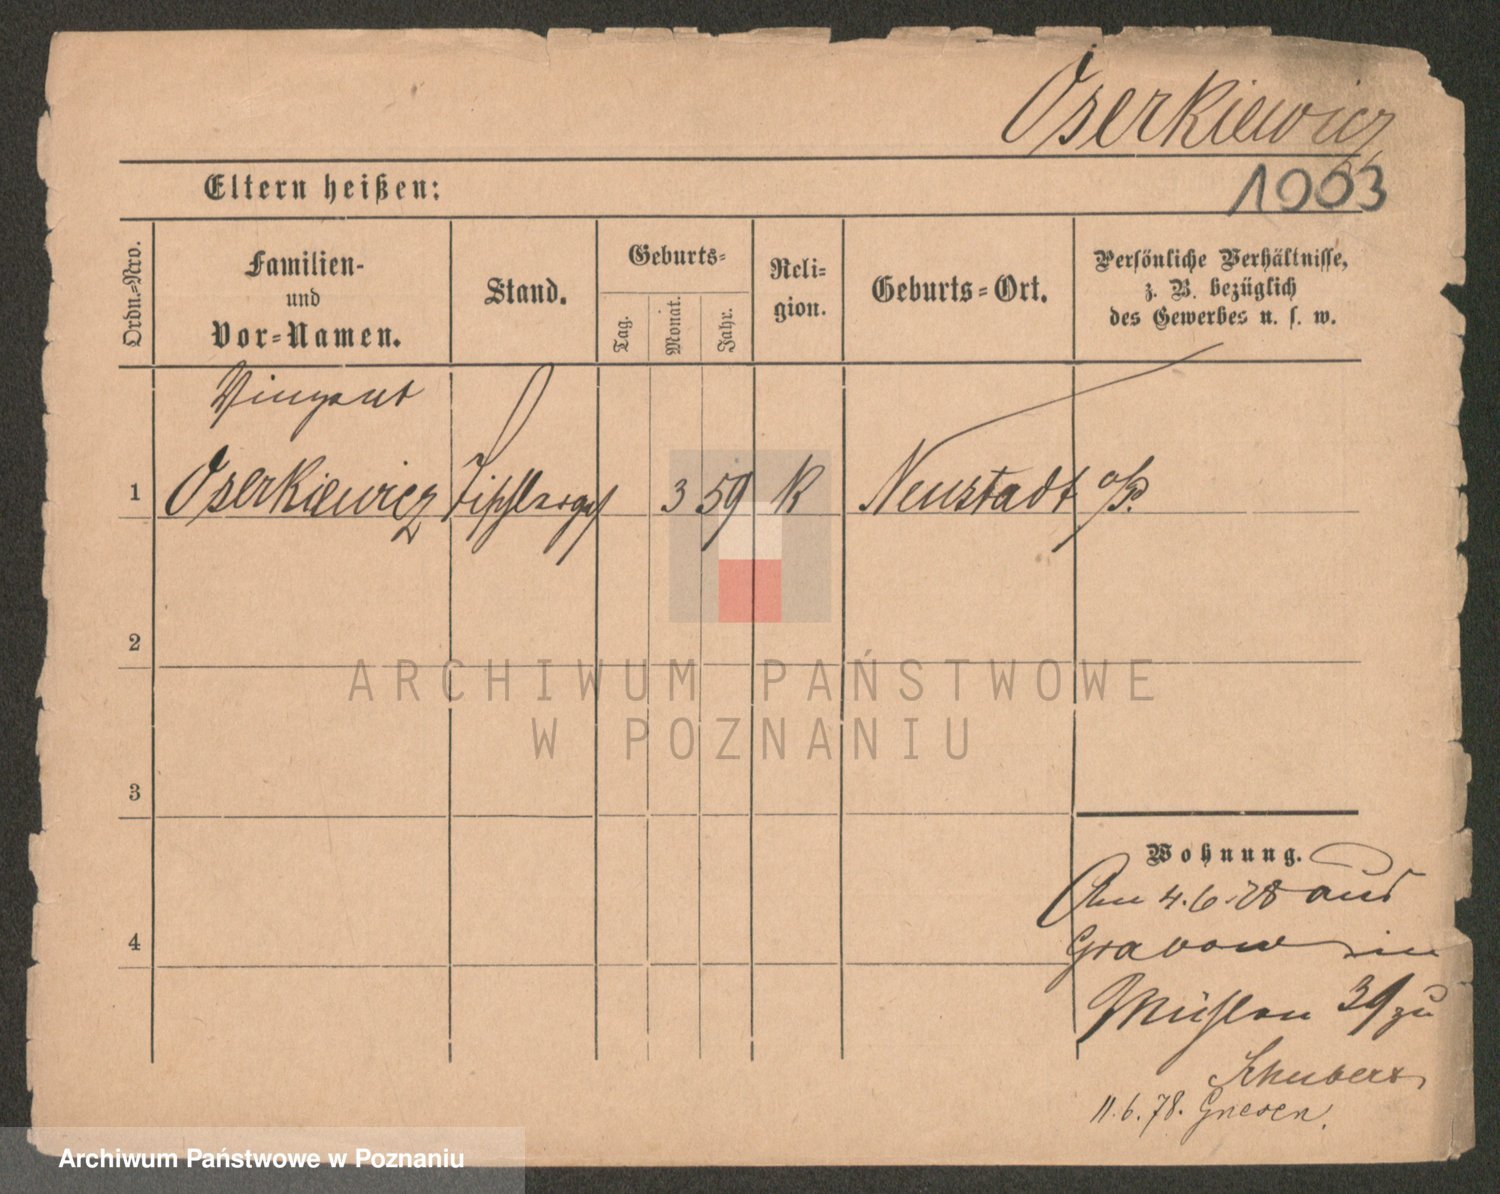 Oserkiewicz
1003
Eltern heißen:
Ordn.=Nro.
Familien-
und
Vor=Namen.
Stand.
Geburts=
Tag.
Monat.
Jahr.
Reli=
gion.
Geburts=Ort.
Persönliche Verhältnisse,
z. B. bezüglich
des Gewerbes u. s. w.
Vinzent
1 Oserkiewicz Tischlerges 3 59 K Neustadt a/P.
2
ARCHIWUM PAŃSTWOWE
W POZNANIU
3
Wohnung.
Am 4.6.78 aus
4
Grabow in
Mühlen 39 zu
Schubert
11.6.78. Gnesen.
Archiwum Państwowe w Poznaniu